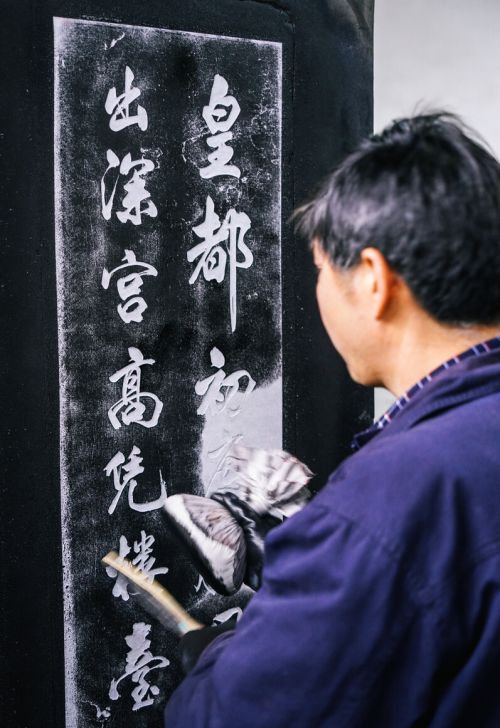 皇都初
出深宫高凭楼臺